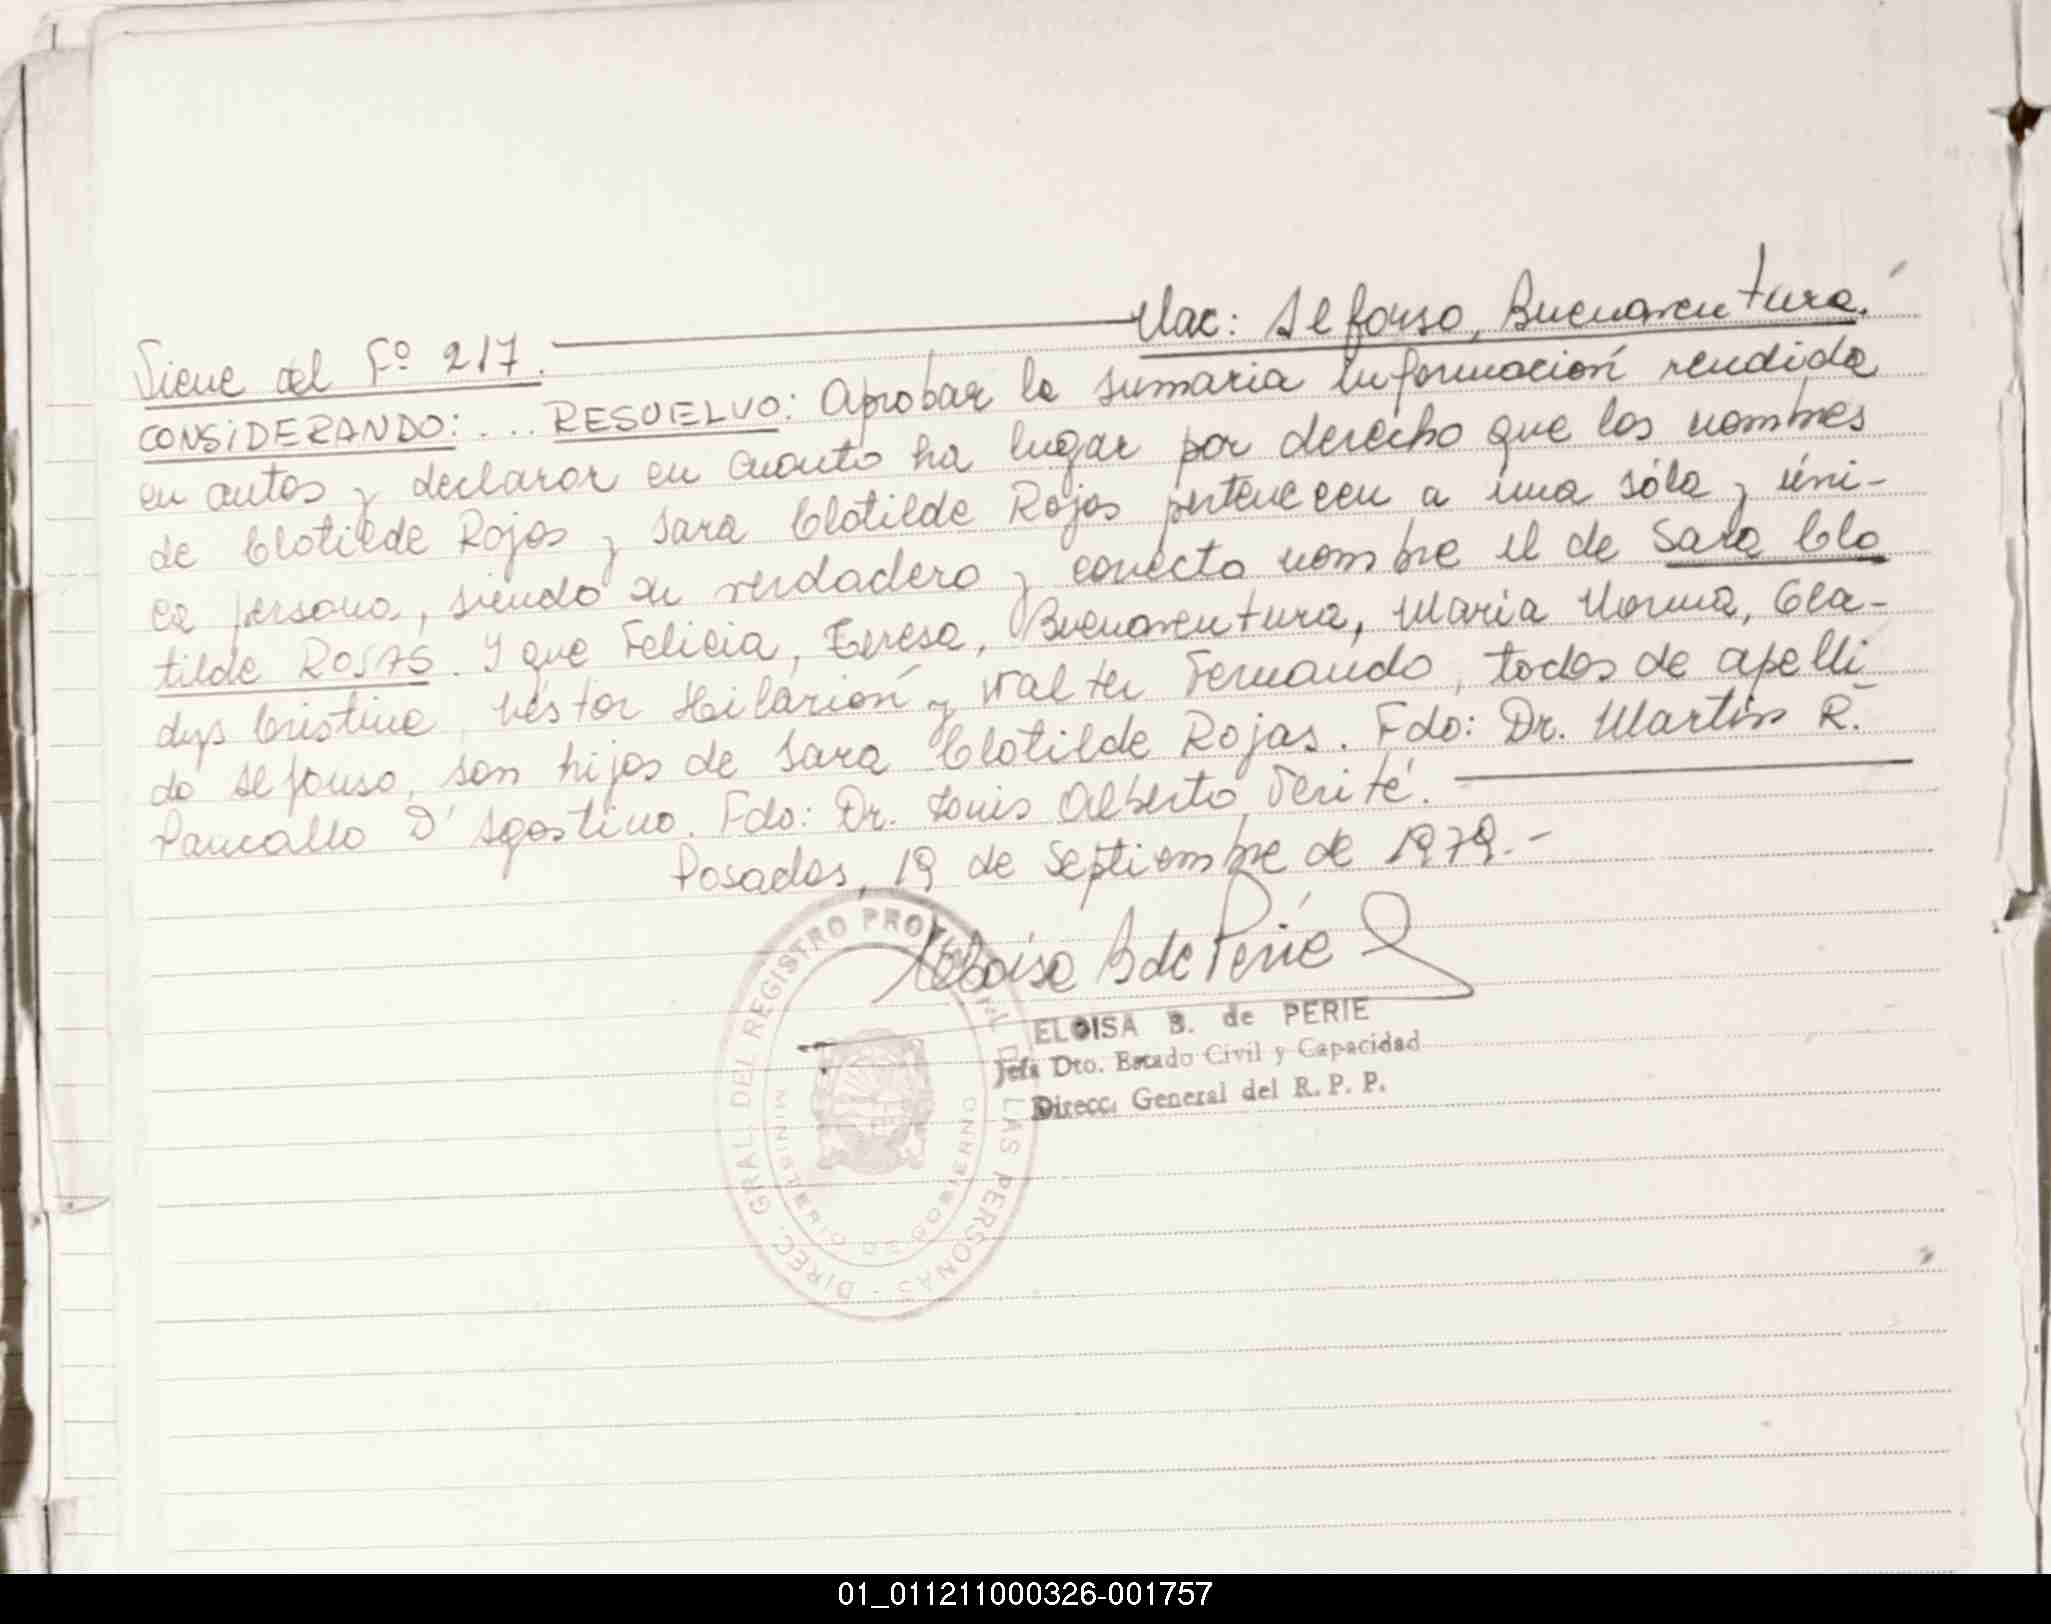 Viene del Fº 217. Nac: Alfonso, Buenaventura.
CONSIDERANDO: ... RESUELVO: Aprobar la sumaria información rendida
en autos y declarar en cuanto ha lugar por derecho que los nombres
de Clotilde Rojas y Sara Clotilde Rojas pertenecen a una sóla y úni-
ca persona, siendo su verdadero y correcto nombre el de Sara Clo
tilde ROJAS. Y que Felicia, Teresa, Buenaventura, María Norma, Gla-
dys Cristina, Néstor Hilarión y Walter Fernando, todos de apelli
do Alfonso, son hijos de Sara Clotilde Rojas. Fdo: Dr. Martín R.
Pancallo D'Agostino. Fdo: Dr. Luis Alberto Terité.
Posadas, 19 de Septiembre de 1979.-
Eloisa B de Perié
ELOISA B. de PERIE
Jefa Dto. Estado Civil y Capacidad
Direcc. General del R. P. P.
DIREC. GRAL. DEL REGISTRO PROVINCIAL DE LAS PERSONAS
MINISTERIO DE GOBIERNO
01_011211000326-001757